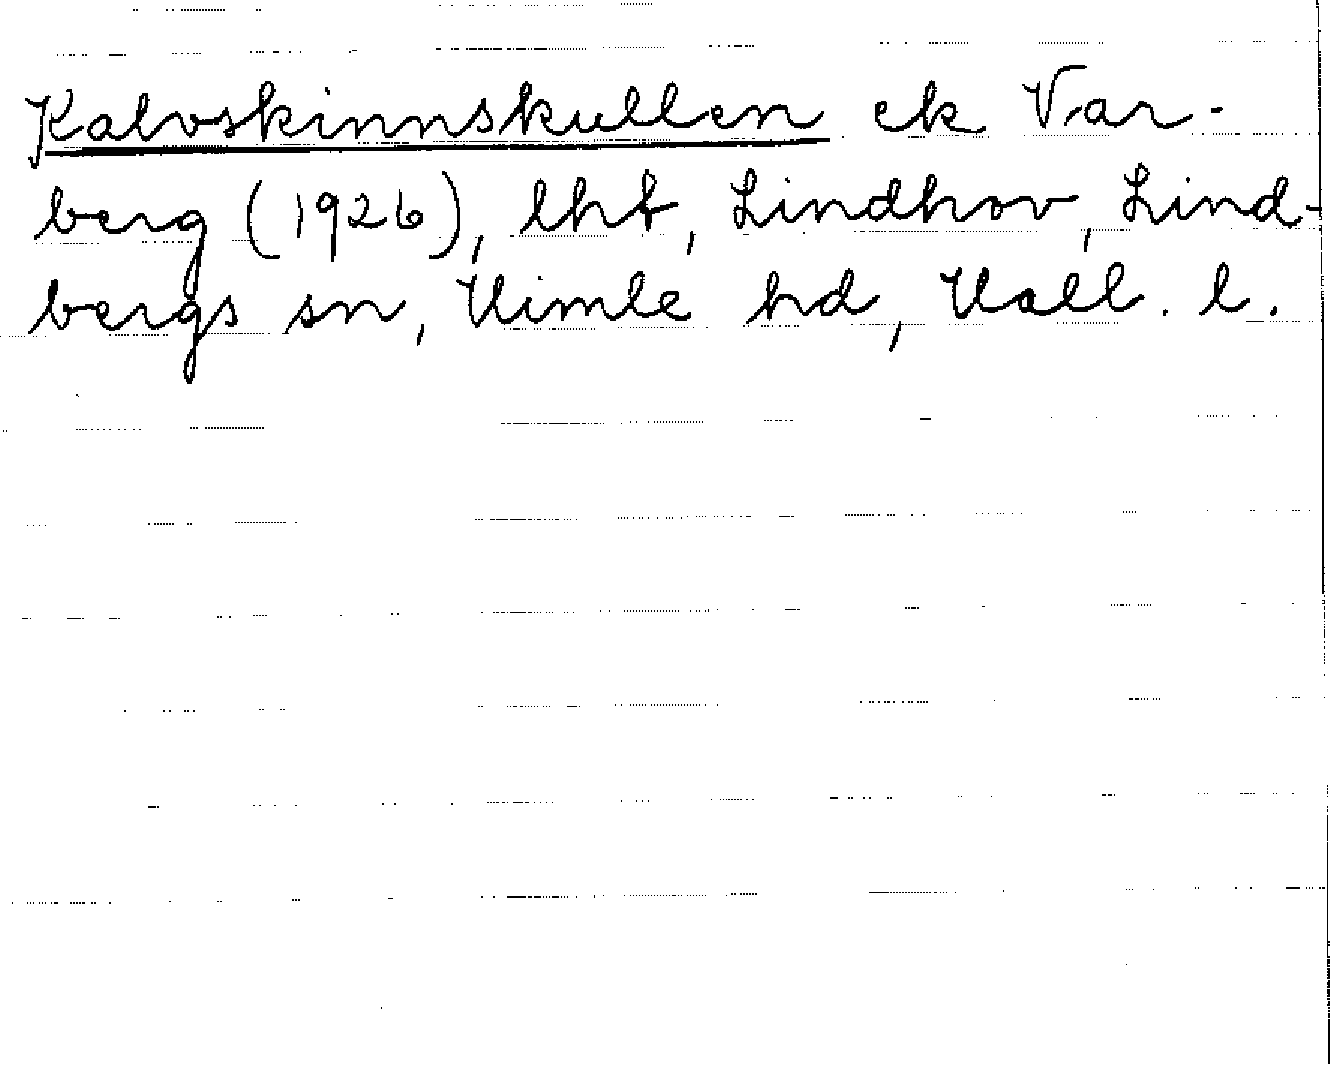 Kalvskinnskullen ek Var-
berg (1926), lht, Lindhov, Lind-
bergs sn, Himle hd, Hall. l.